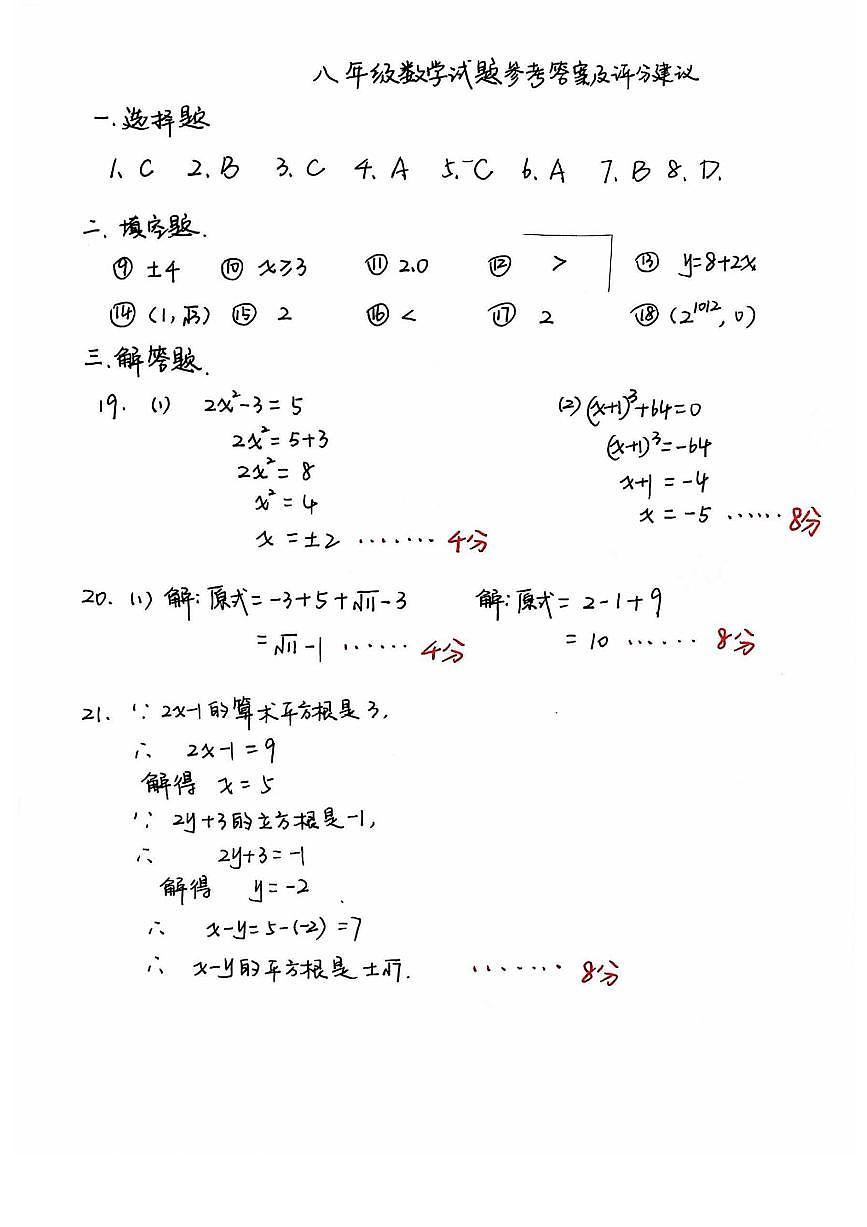 八年级数学试题参考答案及评分建议
一.选择题
1、C 2、B 3、C 4、A 5、C 6、A 7、B 8、D.
二、填空题.
⑨ ±4 ⑩ x≥3 ⑪ 2.0 ⑫ > ⑬ y=8+2x
⑭ (1,√3) ⑮ 2 ⑯ < ⑰ 2 ⑱ (2¹⁰¹², 0)
三.解答题.
19. (1) 2x²-3=5 (2) (x+1)³+64=0
2x²=5+3 (x+1)³=-64
2x²=8 x+1=-4
x²=4 x=-5 …… 8分
x=±2 ……… 4分
20. (1) 解:原式=-3+5+√11-3 解:原式=2-1+9
=√11-1 …… 4分 =10 …… 8分
21. ∵ 2x-1的算术平方根是3,
∴ 2x-1=9
解得 x=5
∵ 2y+3的立方根是-1,
∴ 2y+3=-1
解得 y=-2
∴ x-y=5-(-2)=7
∴ x-y的平方根是±√7. ……… 8分